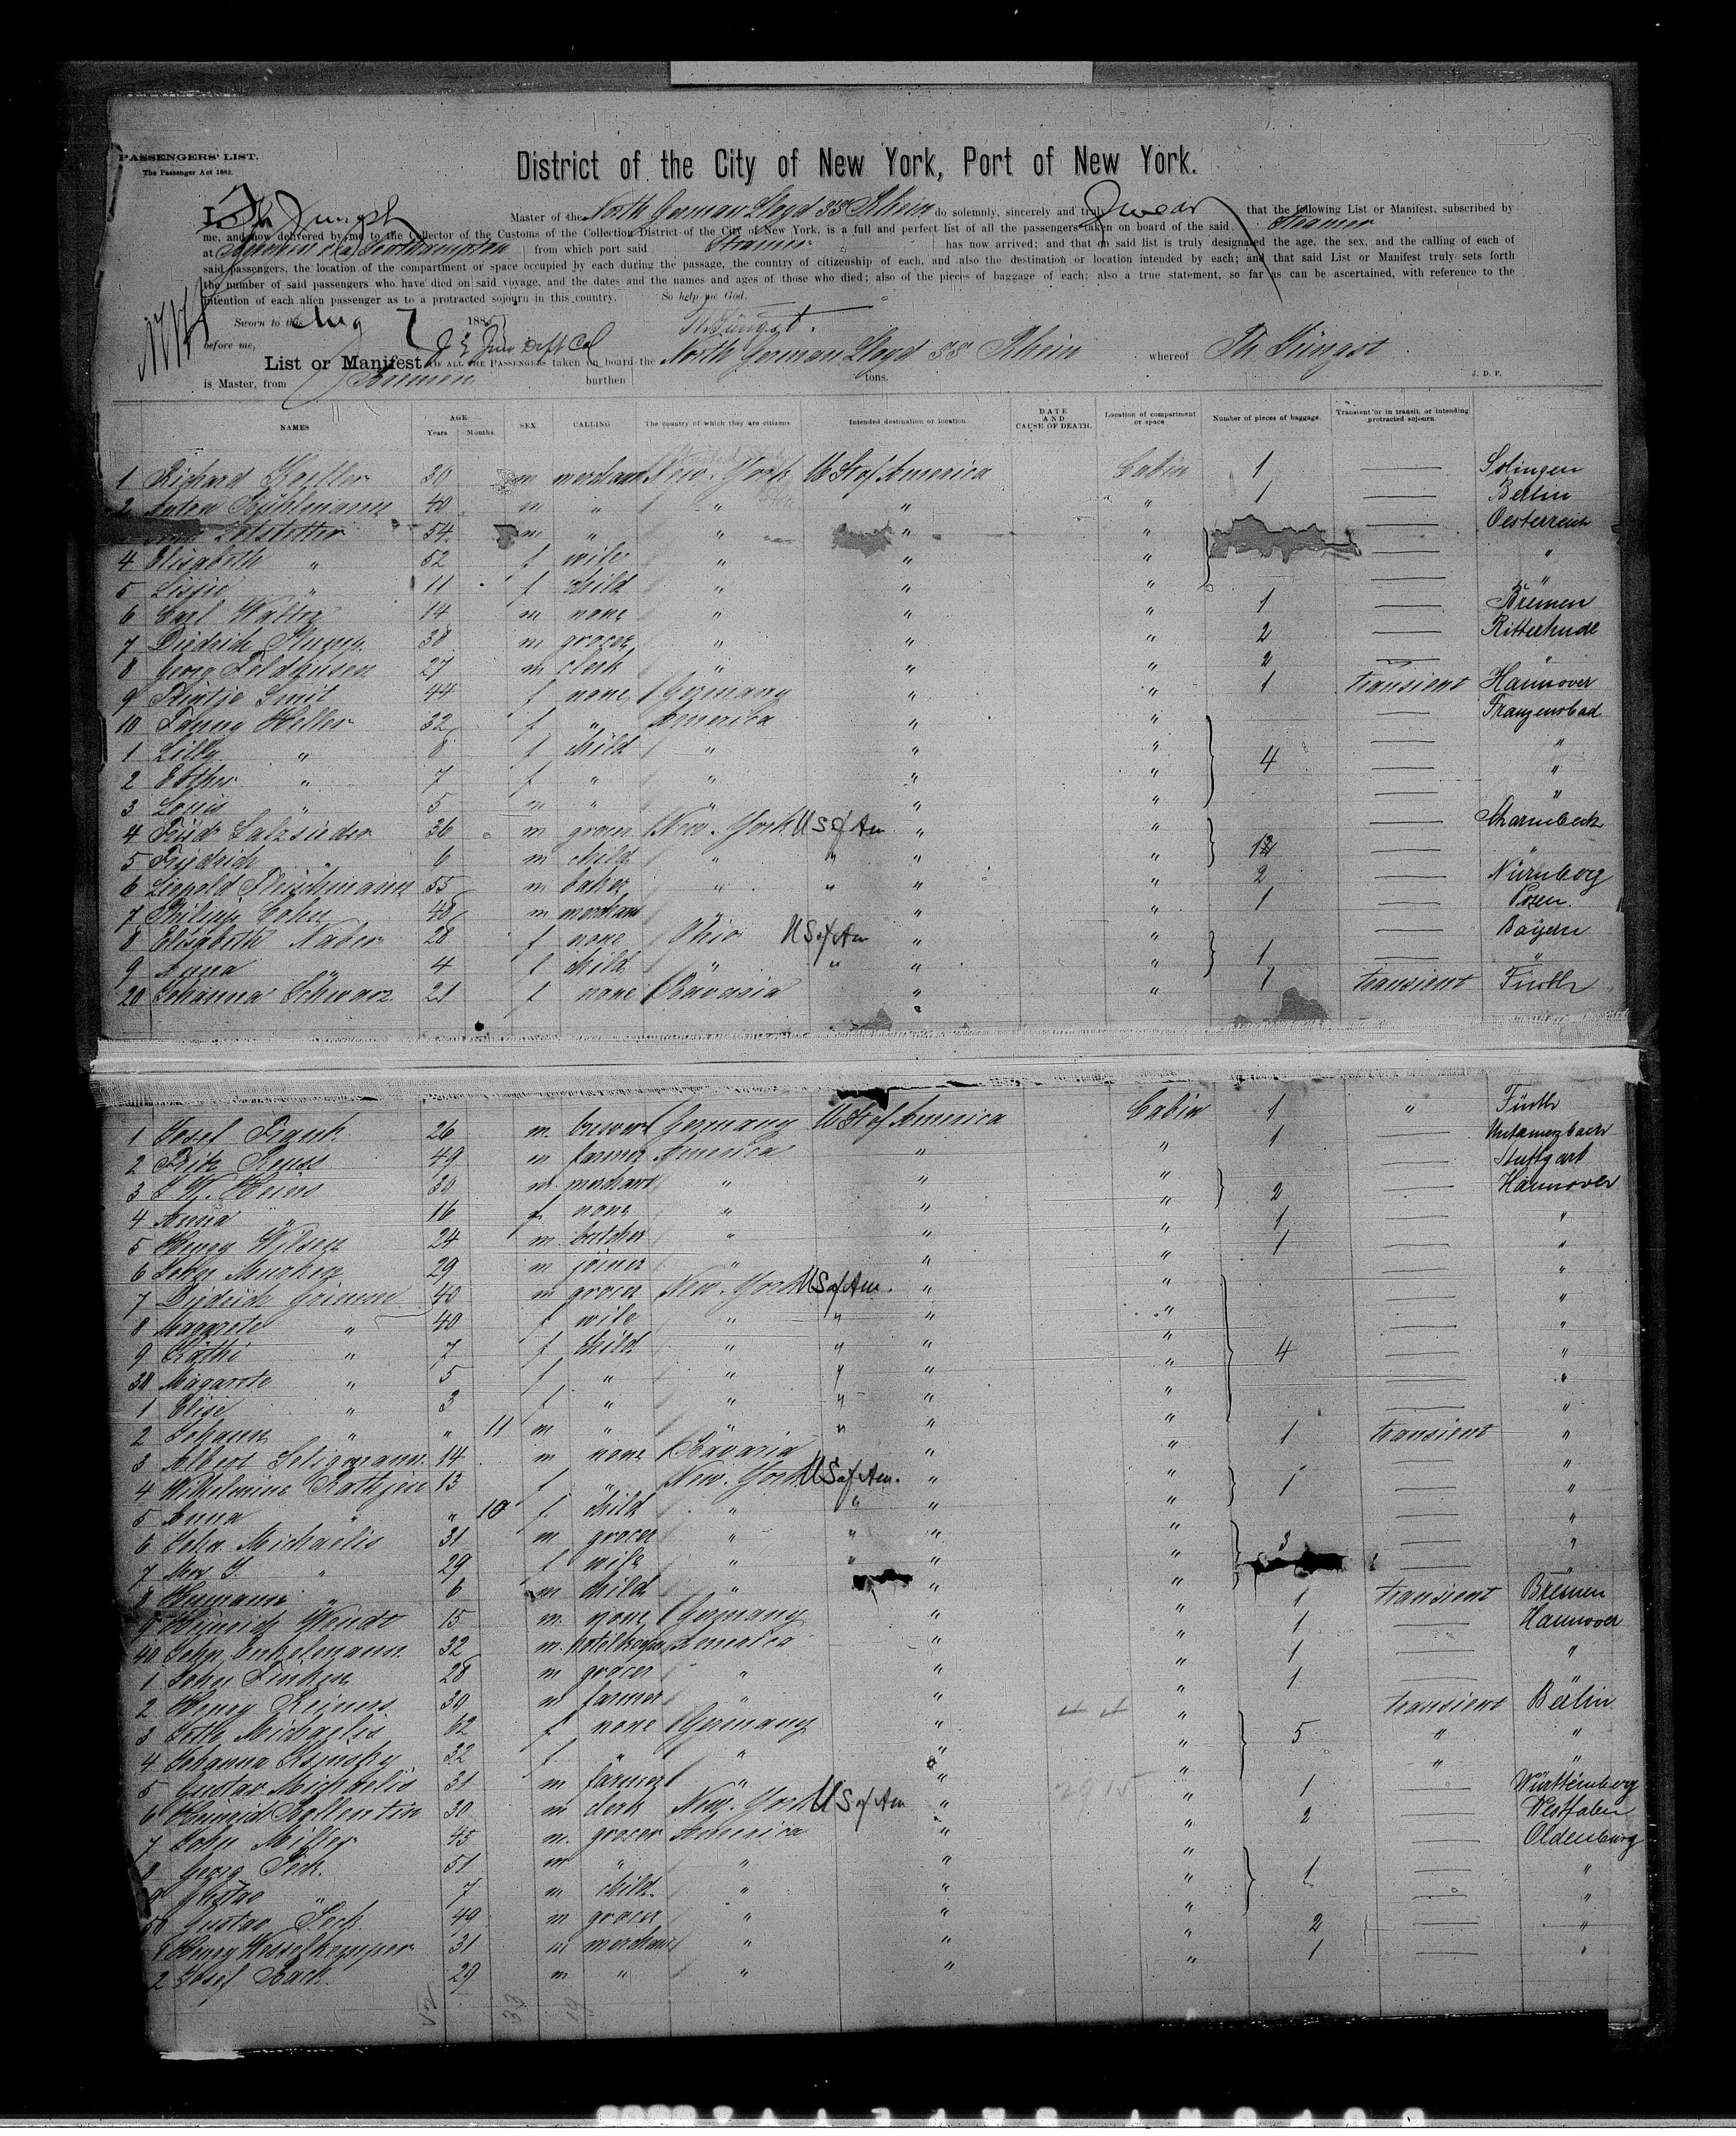 PASSENGERS' LIST.
The Passenger Act 1882.
District of the City of New York, Port of New York.
I, Th Jüngst Master of the North German Lloyd SS Rhein do solemnly, sincerely and truly swear that the following List or Manifest, subscribed by
me, and now delivered by me to the Collector of the Customs of the Collection District of the City of New York, is a full and perfect list of all the passengers taken on board of the said Steamer
at Bremen & Southampton from which port said Steamer has now arrived; and that on said list is truly designated the age, the sex, and the calling of each of
said passengers, the location of the compartment or space occupied by each during the passage, the country of citizenship of each, and also the destination or location intended by each; and that said List or Manifest truly sets forth
the number of said passengers who have died on said voyage, and the dates and the names and ages of those who died; also of the pieces of baggage of each; also a true statement, so far as can be ascertained, with reference to the
intention of each alien passenger as to a protracted sojourn in this country. So help me God.
Sworn to this Aug 7 1885
Th. Jüngst.
before me,
List or Manifest OF ALL THE PASSENGERS taken on board the North German Lloyd SS Rhein whereof Th. Jüngst
is Master, from Bremen burthen tons. J. D. P.
NAMES AGE Years Months. SEX CALLING The country of which they are citizens Intended destination or location DATE AND CAUSE OF DEATH. Location of compartment or space Number of pieces of baggage. Transient or in transit, or intending protracted sojourn.
1 Richard Koeller 30 m merchant New-York U St of America Cabin 1 — Solingen
2 Anton Bühlmann 40 m " " " " 1 — Berlin
54 m " " " " — Oesterreich
4 Elisabeth " 52 f wife " " " — "
5 Lissie " 11 f child " " " — "
6 Carl Walter 14 m none " " " 1 — Bremen
7 Diedrich Stump 38 m grocer " " " 2 — Ritterhude
8 Georg Feldhusen 27 m clerk " " " 2 — "
9 Smit 44 f none Germany " " 1 transient Hannover
10 Fanny Heller 32 f " America " " — Franzensbad
1 Lilly " 8 f child " " " 4 — "
2 Esther " 7 f " " " " — "
3 Louis " 5 m " " " " — "
4 Fried Salzsieder 36 m grocer New-York U S of Am " " — Scharmbeck
5 Friedrich " 6 m child " " " " — "
6 Leopold Fleischmann 55 m baker " " " " 2 — Nürnberg
7 Philipp Cohn 48 m merchant " " " 1 — Posen.
8 Elisabeth Naber 28 f none Ohio U S of Am " " 1 — Bayern
9 Anna " 4 f child " " " " — "
20 Johanna Schwarz 21 f none Bavaria " " 1 transient Fürth
1 Josef Frank 26 m. brewer Germany U St of America Cabin 1 " Fürth
2 Fritz Reuss 49 m farmer America " " 1 —
3 Heins 30 m merchant " " " 2 — Stuttgart
4 Anna " 16 f none " " " — Hannover
5 Henry Wilsen 24 m. butcher " " " 1 — "
6 John Murken 29 m joiner " " " 1 — "
7 Diedrich Grimm 40 m grocer New-York U S of Am. " " — "
8 Margrete " 40 f wife " " " " — "
9 Käthi " 7 f child " " " " 4 — "
30 Magarete " 5 f " " " " " — "
1 Elise " 3 f " " " " " — "
2 Johann " " 11 m " " " " " — "
3 Albert Seligmann 14 m none Bavaria " " 1 transient "
4 Wilhelmine Rathjen 13 f " New-York U S of Am. " " 1 — "
5 Anna " " 10 f child " " " " — "
6 John Michaelis 31 m grocer " " " " 3 — "
7 Mrs S. " 29 f wife " " " " — "
8 Hermann " 6 m child " " " — "
9 Heinrich Wendt 15 m. none Germany " " 1 transient Bremen
40 John Enkelmann 32 m. hotelkeeper America " " 1 — Hannover
1 John Finken 28 m grocer " " " 1 — "
2 Henry Reiners 30 m farmer " " " 1 —
3 Michaelis 62 f none Germany " " 5 transient Berlin
4 Johanna 32 f " " " " " "
5 Gustav Michaelis 31 m farmer " " " " "
6 30 m clerk New-York U S of Am " " 1 — Württemberg
7 John Miller 45 m. grocer America " " 2 — Westfalen
8 Georg Peck 51 m " " " " 1 — Oldenburg
9 Gustav " 7 m child. " " " — "
50 Gustav Peck 49 m grocer " " " — "
1 Henry Wesselkemper 31 m merchant " " " 2 — "
2 Josef Bach 29 m " " " " 1 — "
52 33 19